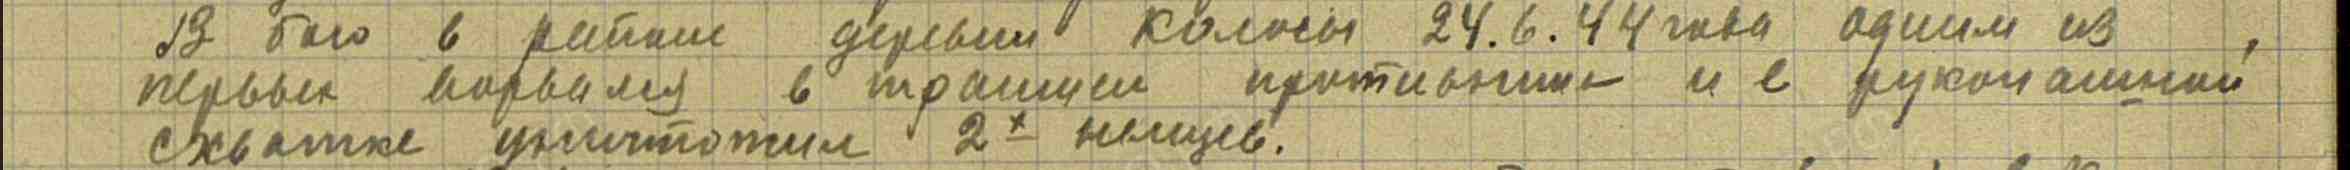 В бою в районе деревни Колосы 24.6.44 года одним из
первых ворвался в траншеи противника и в рукопашной
схватке уничтожил 2х немцев.